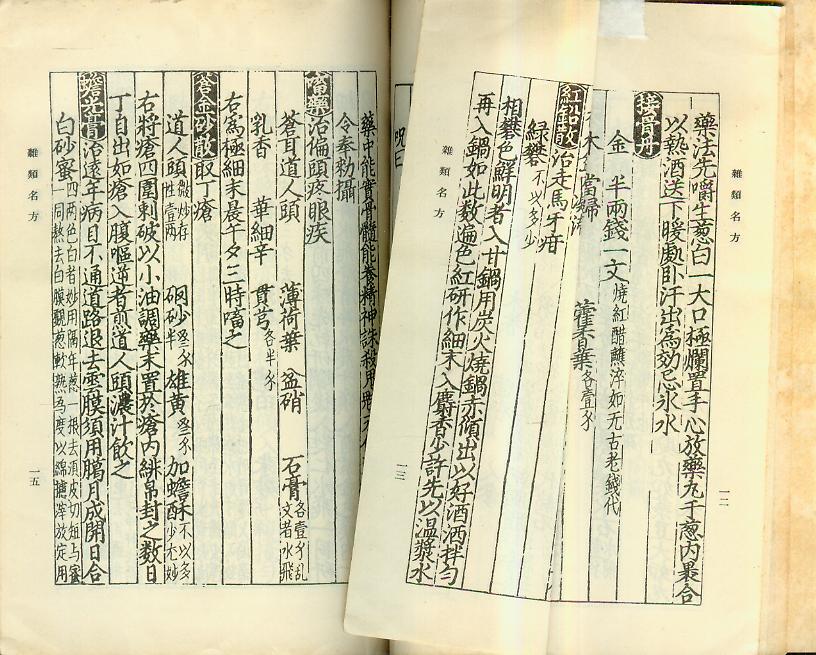 雜類名方
藥法先嚼生葱白一大口極爛置手心放藥丸于葱內裹合
以熱酒送下暖處臥汗出爲効忌氷水
一二
接骨丹
金 半兩錢一文燒紅醋蘸淬如无古老錢代
木 當歸 藁 各壹分
紅鉛散治走馬牙疳
綠礬不以多少
相礬色鮮明者入甘鍋用炭火燒鍋赤傾出以好酒洒拌勻
再入鍋如此数遍色紅研作細末入麝香少許先以温漿水
雜類名方
一三
呪曰
藥中能實骨髓能養精神誅殺
令奉勑攝
㗜藥治偏頭疼眼疾
蒼耳道人頭 薄荷葉 盆硝 石膏各壹分乱文者水飛
乳香 華細辛 貫芎各半分
右爲極細末晨午夕三時㗜之
蒼金砂散取丁瘡
道人頭微炒存性壹兩 硇砂半 雄黄 加蟾酥不以多少尤妙
右將瘡四圍刺破以小油調藥末置於瘡內緋帛封之数日
丁自出如瘡入腹嘔逆者煎道人頭濃汁飲之
蟾光膏治遠年病目不通道路退去雲膜須用臈月成開日合
白砂蜜四两色白者妙用隔年葱一根去須皮切短与蜜一同熬去白膜覰葱軟熟爲度以綿濾滓放定用
雜類名方
一五